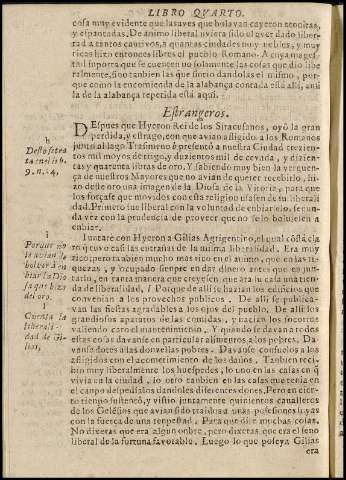 LIBRO QVARTO.
cosa muy evidente que las aves que bolavan cayeron atonitas,
y espantadas. De animo liberal uviera sido el aver dado liber-
tad a tantos cautivos, a quantas ciudades muy nobles, y muy
ricas hizo entonces libres el pueblo Romano. A cuya magestad
inporta que se cuenten no solamente las cosas que dio libe
ralmente, sino tanbien las que
la de la alabança repetida està aqui.
Estrangeros.
DEspues que Hyeron Rei de los Siracusanos, oyò la gran
perdida, y estrago, con que avian afligido a los Romanos
junto al lago Trasimeno h presentò a nuestra Ciudad trezien-
tos mil moyos de trigo, y duzientos mil de cevada, y dozien-
tas y quarenta libras de oro. Y sabiendo muy bien la verguen-
ça de nuestros Mayores que no avian de querer recebirlo, hi-
zo desse oro una imagen de la Diosa de la Vitoria, para que
los forçasse que movidos con esta religion usasen de su liberali
dad. Primero fue liberal con la voluntad de enbiarselo, segun-
da vez con la prudencia de proveer que no selo bolviesen a
enbiar.
h
Desto se tra
ta en el lib.
9. n. 14.
Iuntarè con Hyeron a Gilias Agrigentino, el qual cosa cier
to que tuvo casi las entrañas de la misma liberalidad. Era muy
rico, pero tanbien mucho mas rico en el animo, que en las ri-
quezas, y ocupado sienpre en dar dinero antes que en jun-
tarlo, en tanta manera que creyesen que era su casa una tienda
de liberalidad. l Porque de allì se hazian los edificios que
convenian a los provechos publicos. De allì se publica-
van las fiestas agradables a los ojos del pueblo. De allì los
grandiosos aparatos de las comidas, y nacian los socorros
valiendo caro el mantenimiento. Y quando se davan a todos
estas cosas davanse en particular alimentos a los pobres. Da-
vanse dotes a las donzellas pobres. Davanse consuelos a los
afligidos con el acometimiento de los daños. Tanbien reci-
bio muy liberalmente los huespedes, lo uno en las casas en q̃
vivia en la ciudad, lo otro tanbien en las casas que tenia en
el canpo despedialos dandoles diferentes dones. Pero en cier-
to tienpo sustentò, y vistio juntamente quinientos cavalleros
de los Gelesios que avian sido traidos a sus posesiones suyas
con la fuerça de una tenpestad. Para que dire muchas cosas.
No dixeras que era algun onbre, pero dixeras que era el seno
liberal de la fortuna favorable. Luego lo que poseya Gilias
era
i
Porque no
le avian de
bolver à en
biar la Dio
sa que hizo
del oro.
l
Cuenta la
liberali-
dad de Gi-
lias,